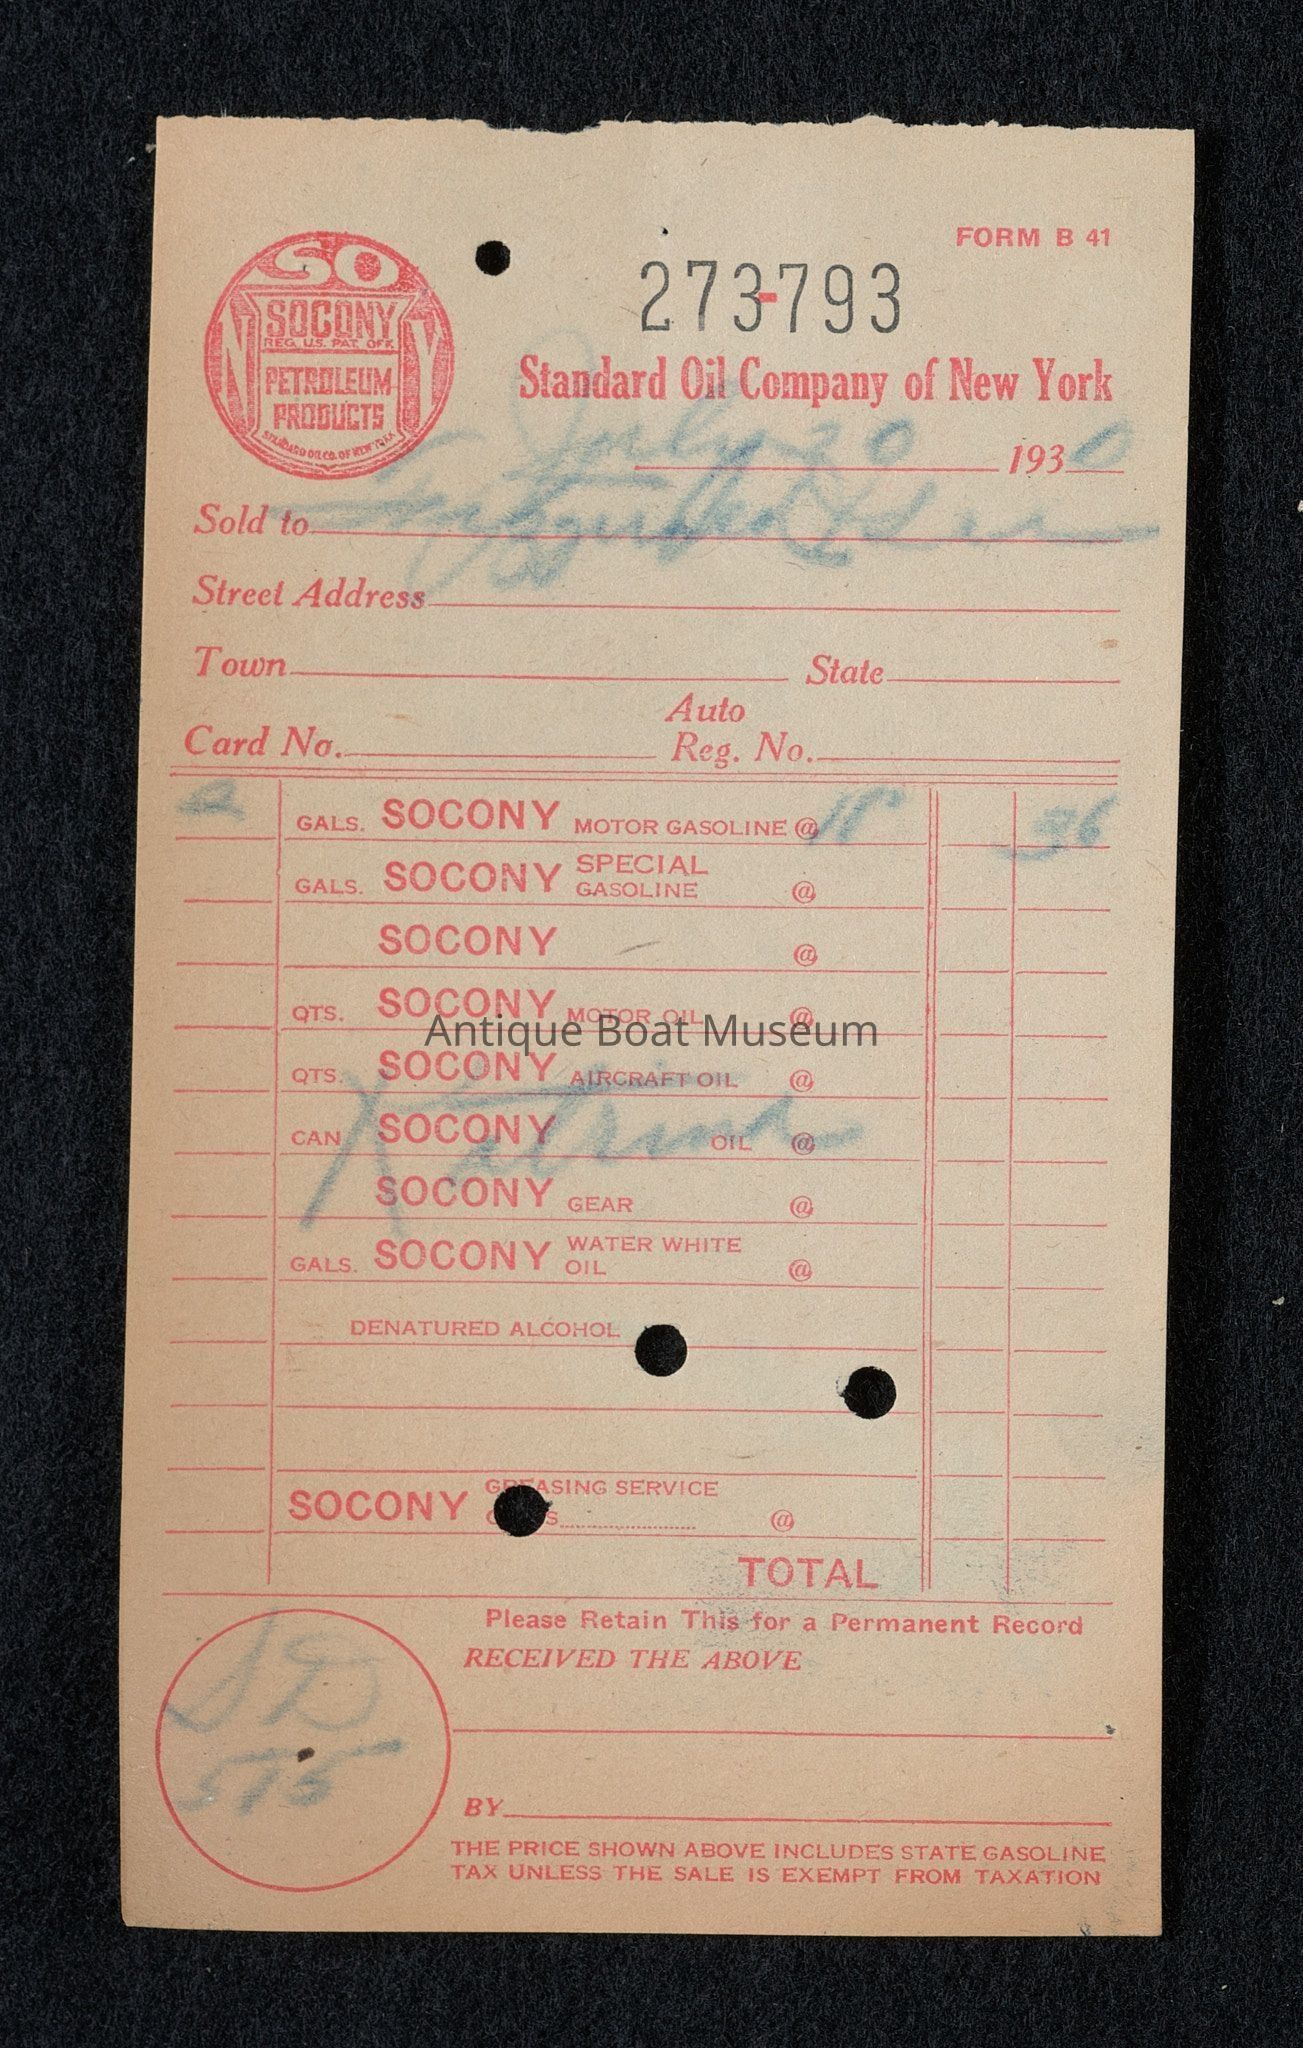 SO
NY
SOCONY
REG. U.S. PAT. OFF.
PETROLEUM
PRODUCTS
STANDARD OIL CO. OF NEW YORK
FORM B 41
273-793
Standard Oil Company of New York
July 20 1930
Sold to
Street Address
Town State
Auto
Card No. Reg. No.
2 GALS. SOCONY MOTOR GASOLINE @ 18 36
GALS. SOCONY SPECIAL GASOLINE @
SOCONY @
QTS. SOCONY MOTOR OIL @
Antique Boat Museum
QTS. SOCONY AIRCRAFT OIL @
CAN SOCONY OIL @
Katrina
SOCONY GEAR @
GALS. SOCONY WATER WHITE OIL @
DENATURED ALCOHOL
SOCONY GREASING SERVICE
@
TOTAL
Please Retain This for a Permanent Record
RECEIVED THE ABOVE
SD
575
BY
THE PRICE SHOWN ABOVE INCLUDES STATE GASOLINE
TAX UNLESS THE SALE IS EXEMPT FROM TAXATION